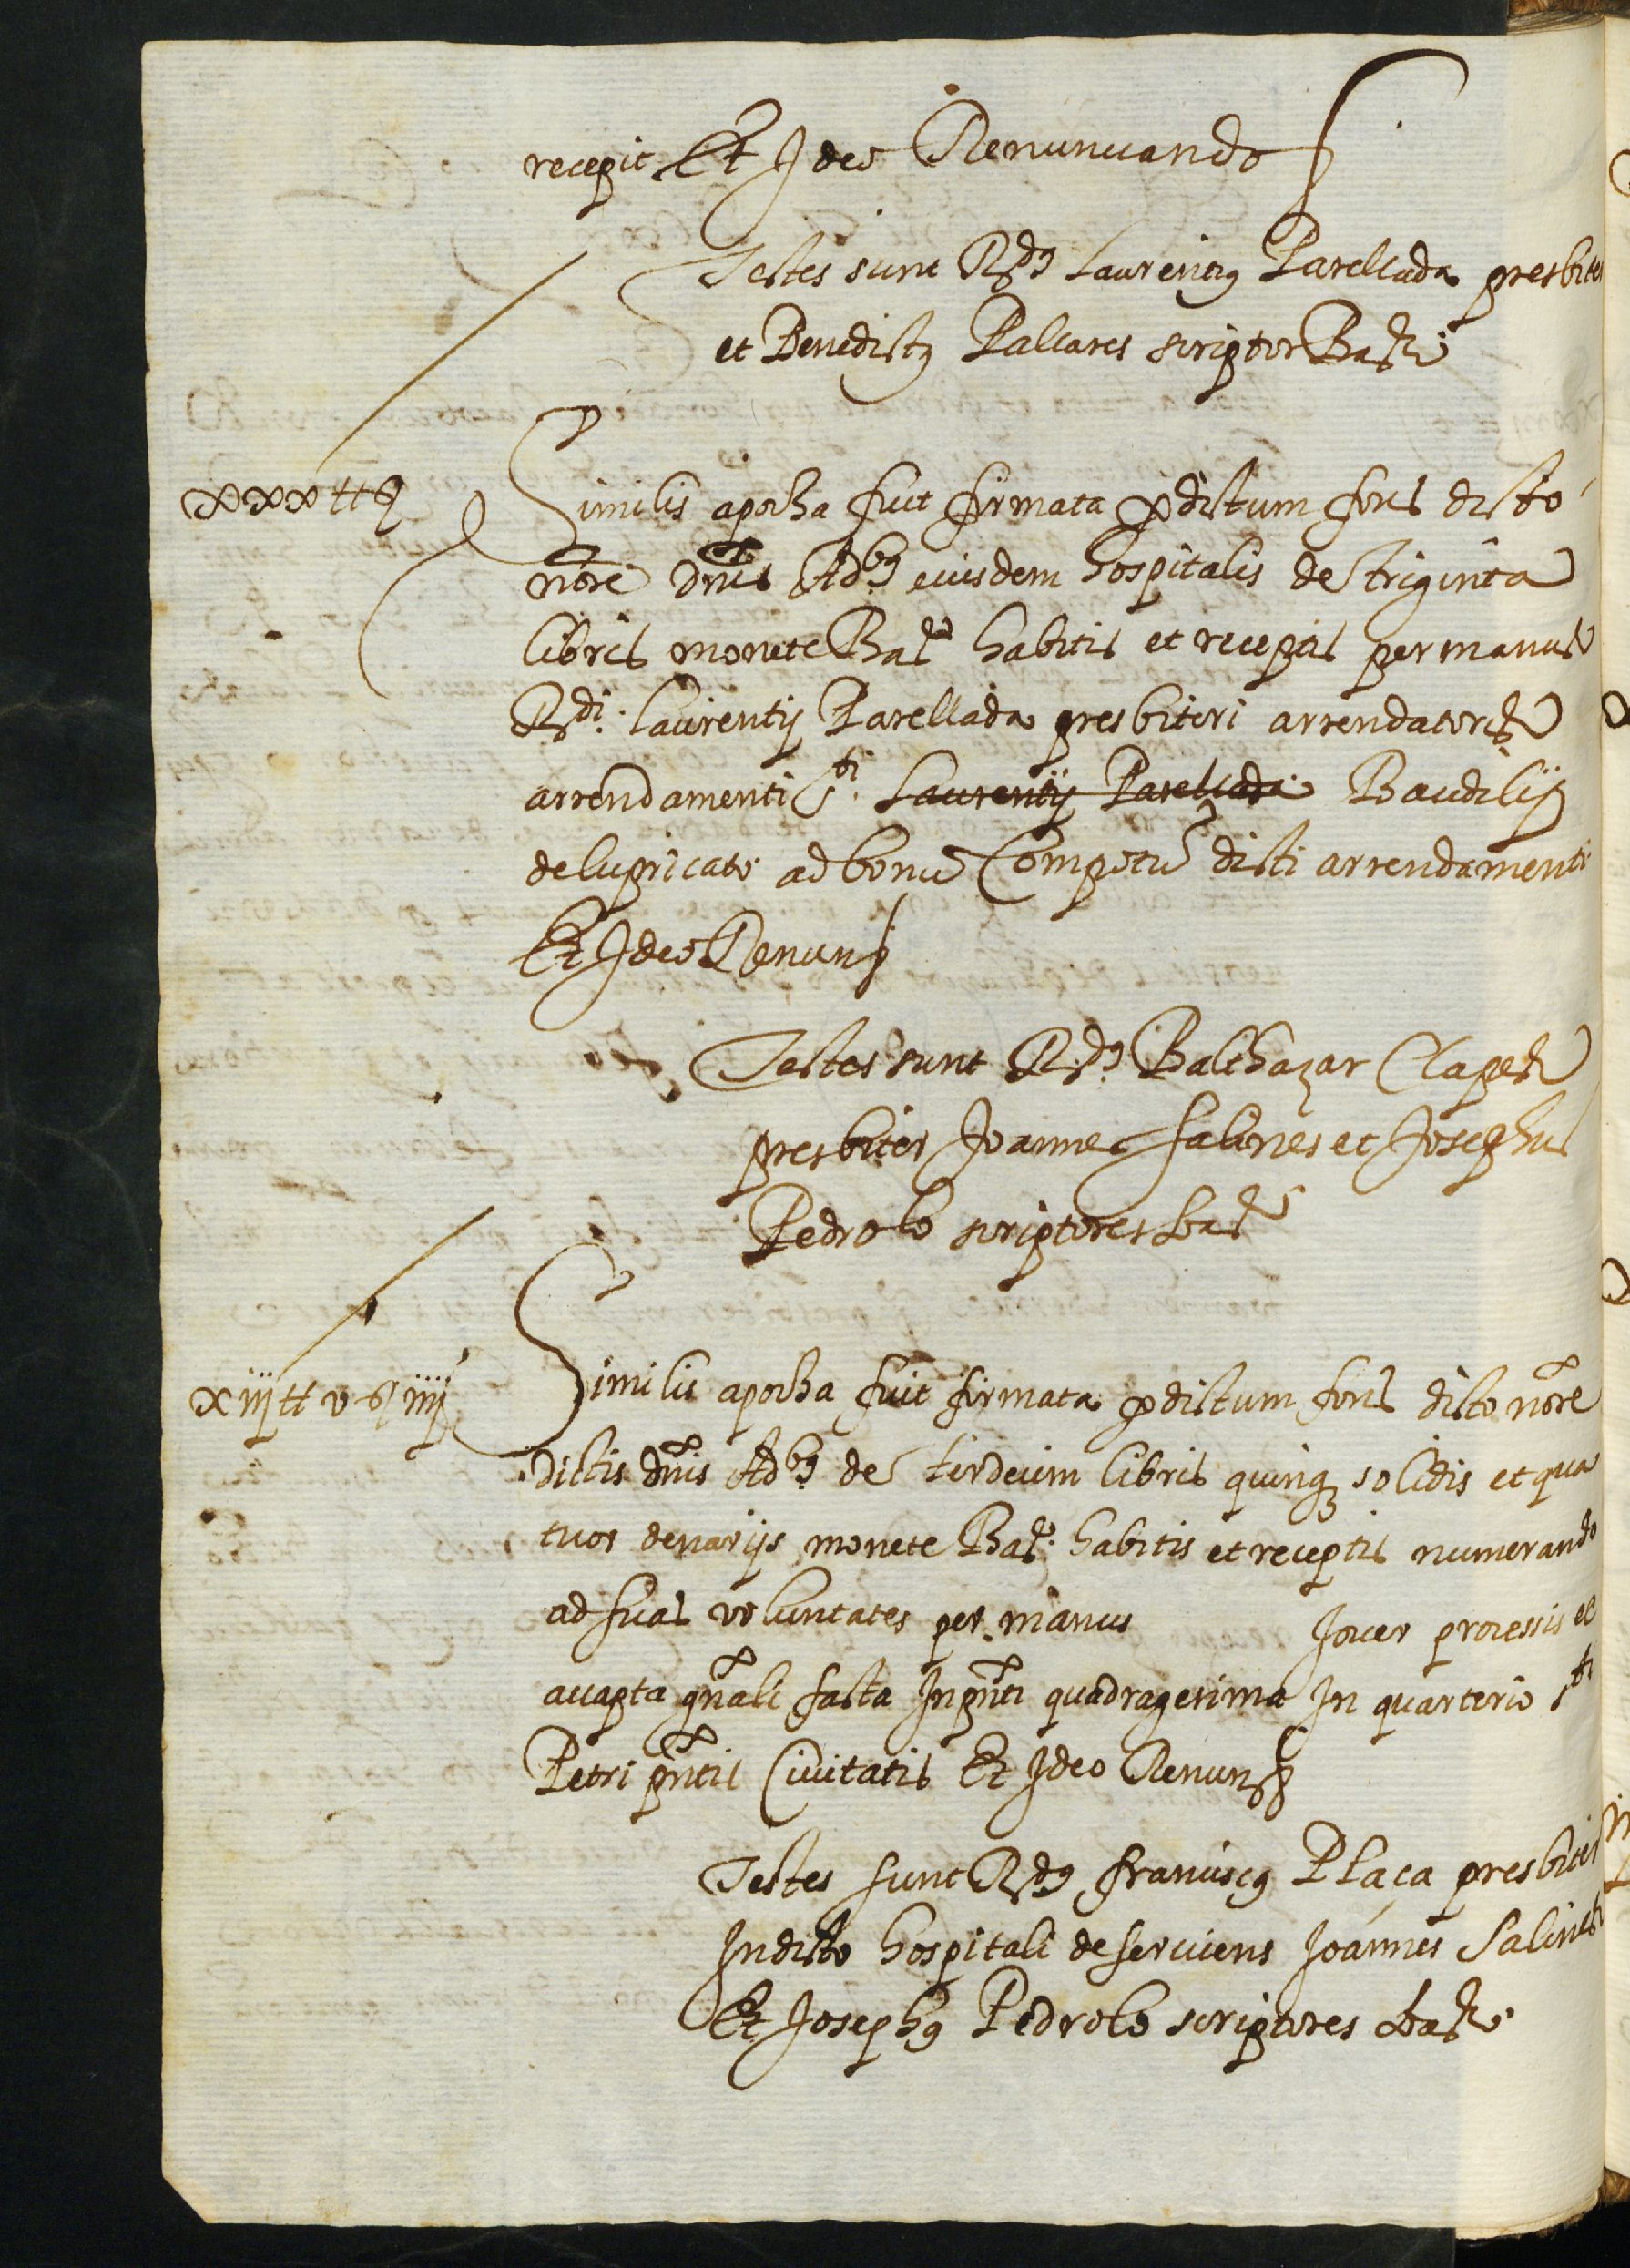 recepit Et Ideo Renuncando
Testes sunt Rdus Laurentius Parellada presbiter
et Benedictus Pallares scriptor Barne
xxx tt
Similis apocha fuit firmata per dictum fons dicto
nōre dnis Adbus eiusdem hospitalis de triginta
libris monete Bar habitis et receptis per manus
Rdi. Laurentij Parellada presbiteri arrendatoris
arrendamenti sti. Laurentij Parellada Baudilij
de lupricato ad bonū Compotū dicti arrendamenti
Et Ideo Renun
Testes sunt Rdus Balthazar Claper
presbiter Joannes salines et Josephus
Pedrolo scriptores bar
xiij tt v s iiij
Similis apocha fuit firmata per dictum fons dicto nōre
dictis dnis Adbus de terdecim libris quinq solidis et qua
tuor denarijs monete Bar. habitis et receptis numerando
ad suas voluntates per manus Jover processis ex
acapta gnāli facta In pnti quadragesima In quarterio sti
Petri pntis Civitatis Et Ideo Renun
Testes sunt Rdus franciscus Plaça presbiter
In dicto hospitali deserviens Joannes Salines
Et Josephus Pedrolo scriptores bar